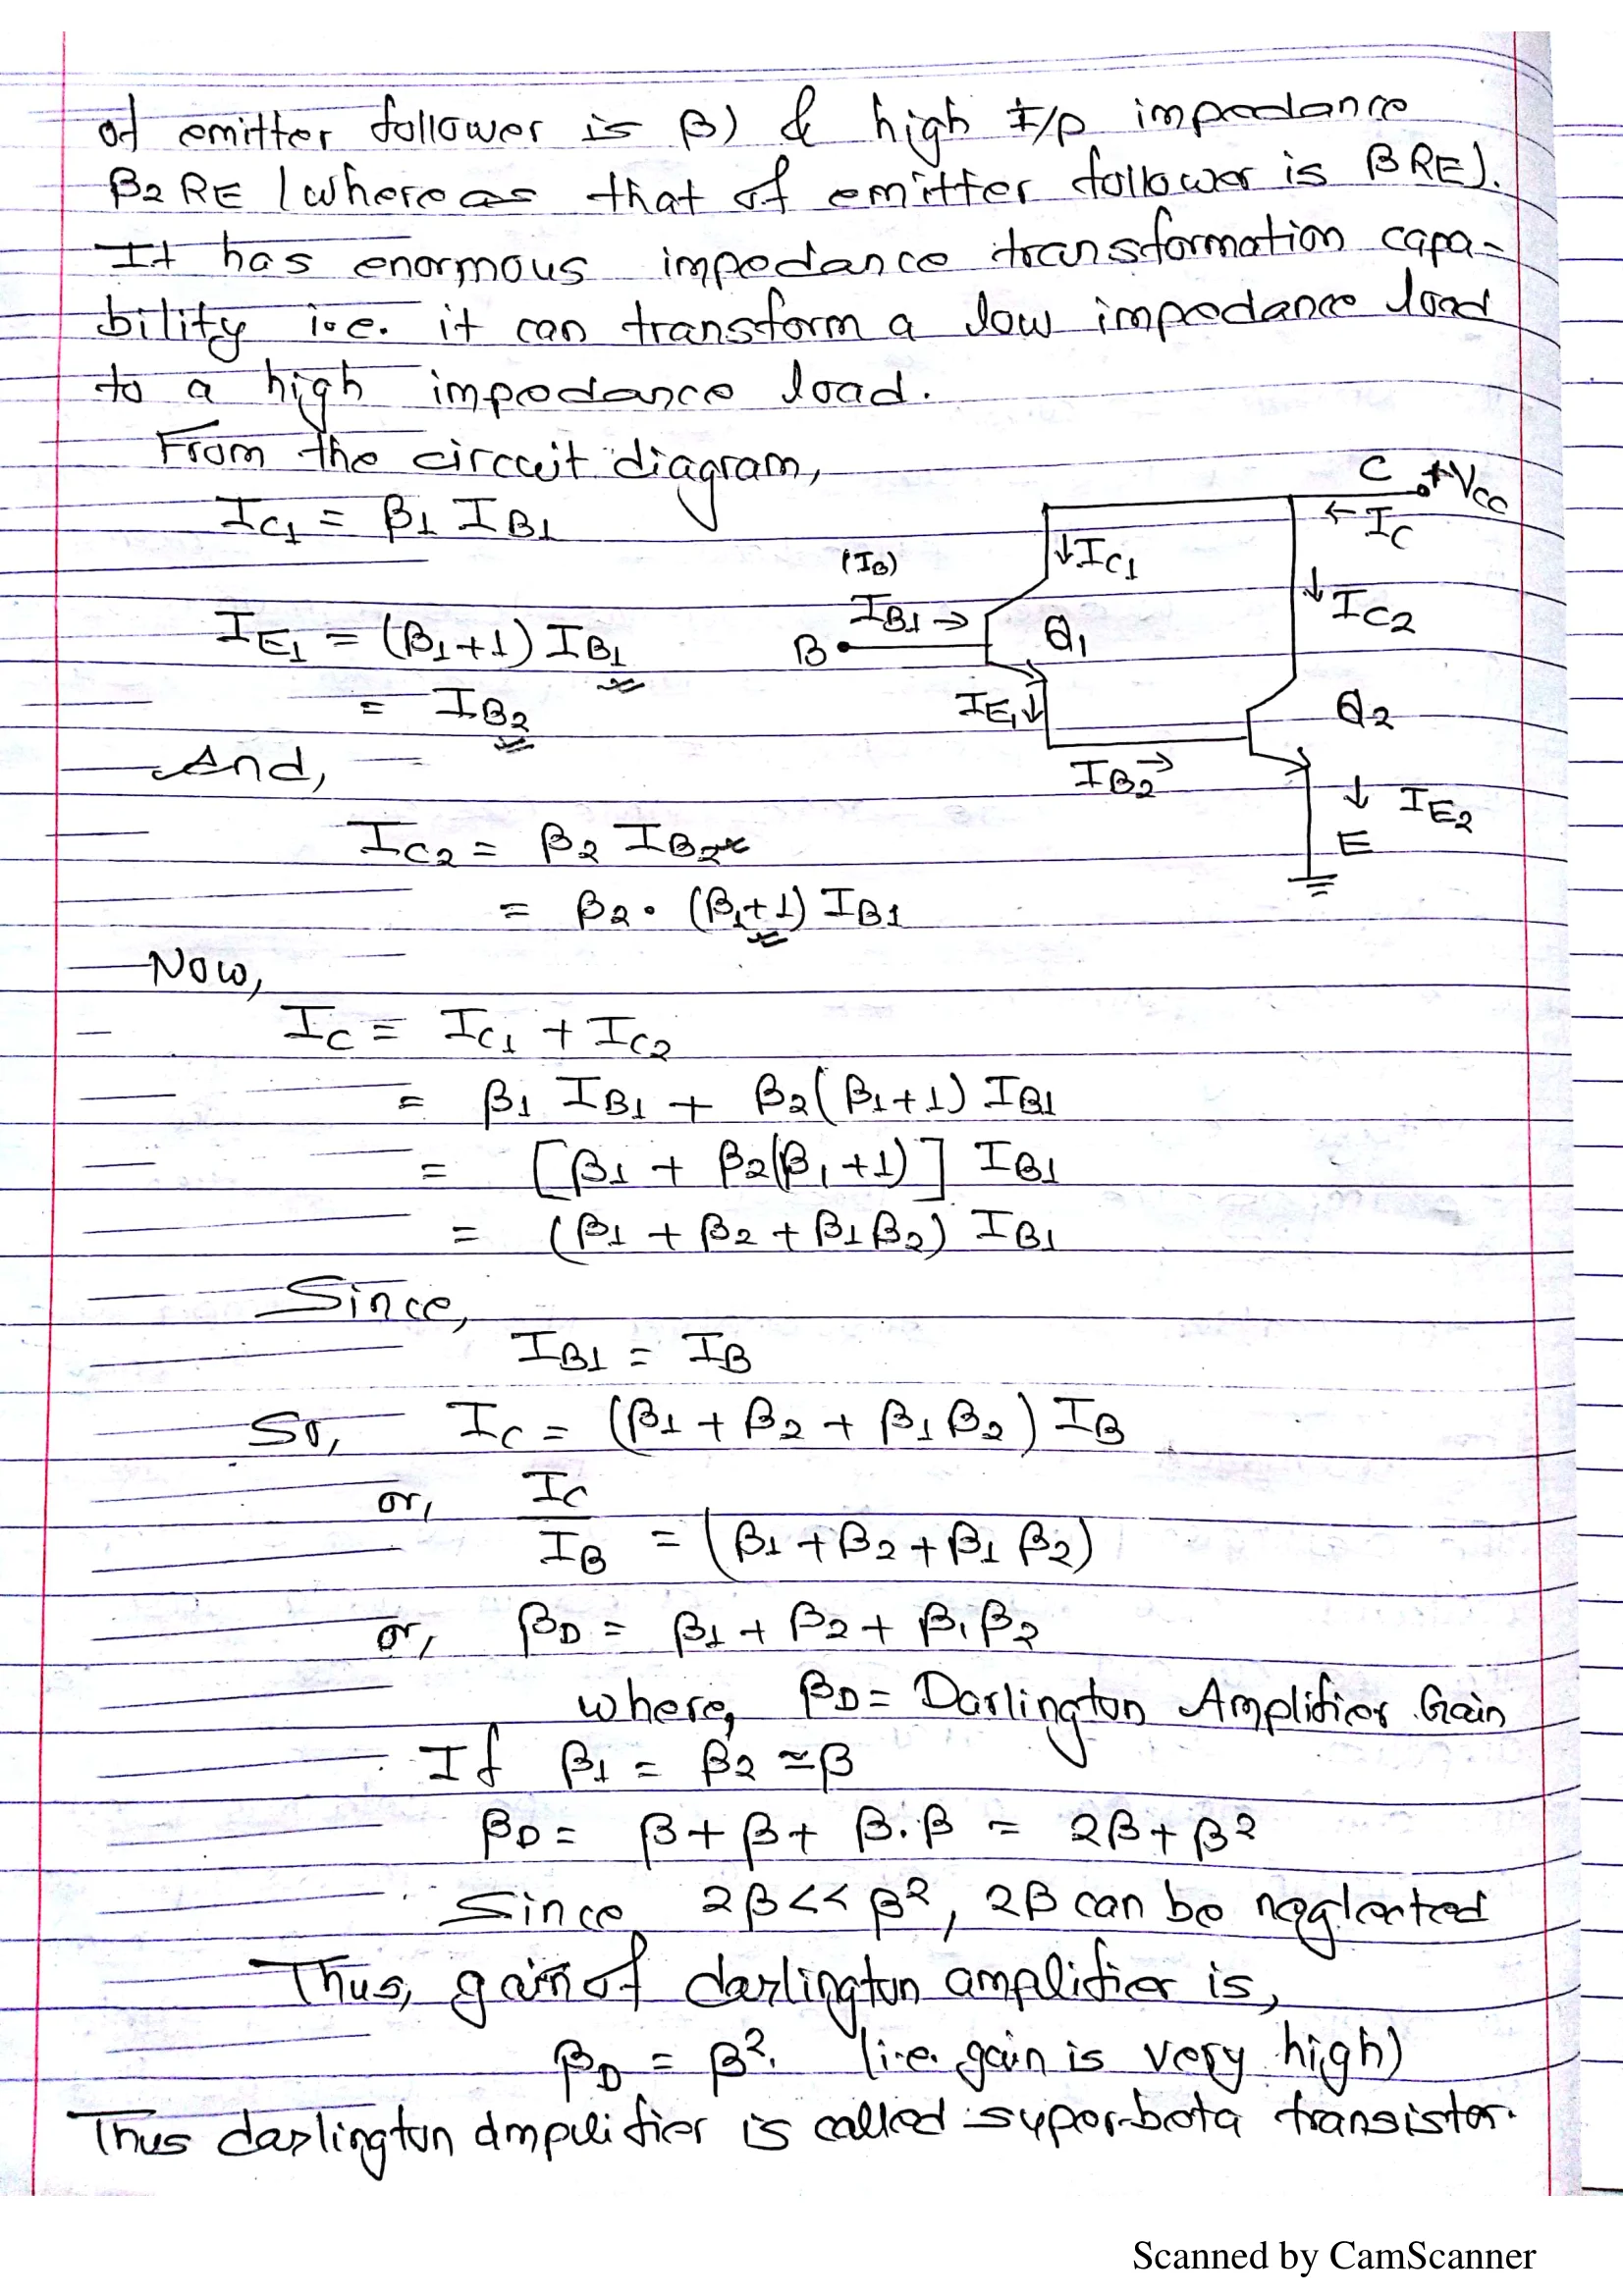 of emitter follower is β) & high I/p impedance
β2 RE (whereas that of emitter follower is βRE).
It has enormous impedance transformation capa-
bility i.e. it can transform a low impedance load
to a high impedance load.
From the circuit diagram,
C +VCC
← IC
IC1 = β1 IB1
↓IC1
(IB)
↓ IC2
IB1 →
IE1 = (β1+1) IB1
B
Q1
= IB2
IE1↓
Q2
And,
IB2 →
↓ IE2
E
IC2 = β2 IB2
= β2 . (β1+1) IB1
Now,
IC = IC1 + IC2
= β1 IB1 + β2(β1+1) IB1
= [β1 + β2(β1+1)] IB1
= (β1 + β2 + β1β2) IB1
Since,
IB1 = IB
So, IC = (β1 + β2 + β1β2) IB
or, IC/IB = (β1 + β2 + β1 β2)
or, βD = β1 + β2 + β1β2
where, βD = Darlington Amplifier Gain
If β1 = β2 ≃ β
βD = β + β + β.β = 2β + β²
Since 2β << β², 2β can be neglected
Thus, gain of darlington amplifier is,
βD = β². (i.e. gain is very high)
Thus darlington amplifier is called super-beta transistor.
Scanned by CamScanner